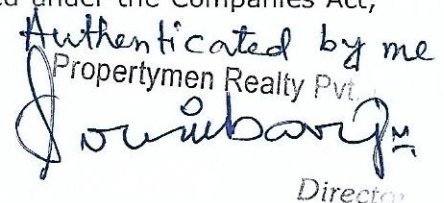 ed under the Companies Act,
Authenticated by me
Propertymen Realty Pvt
Director